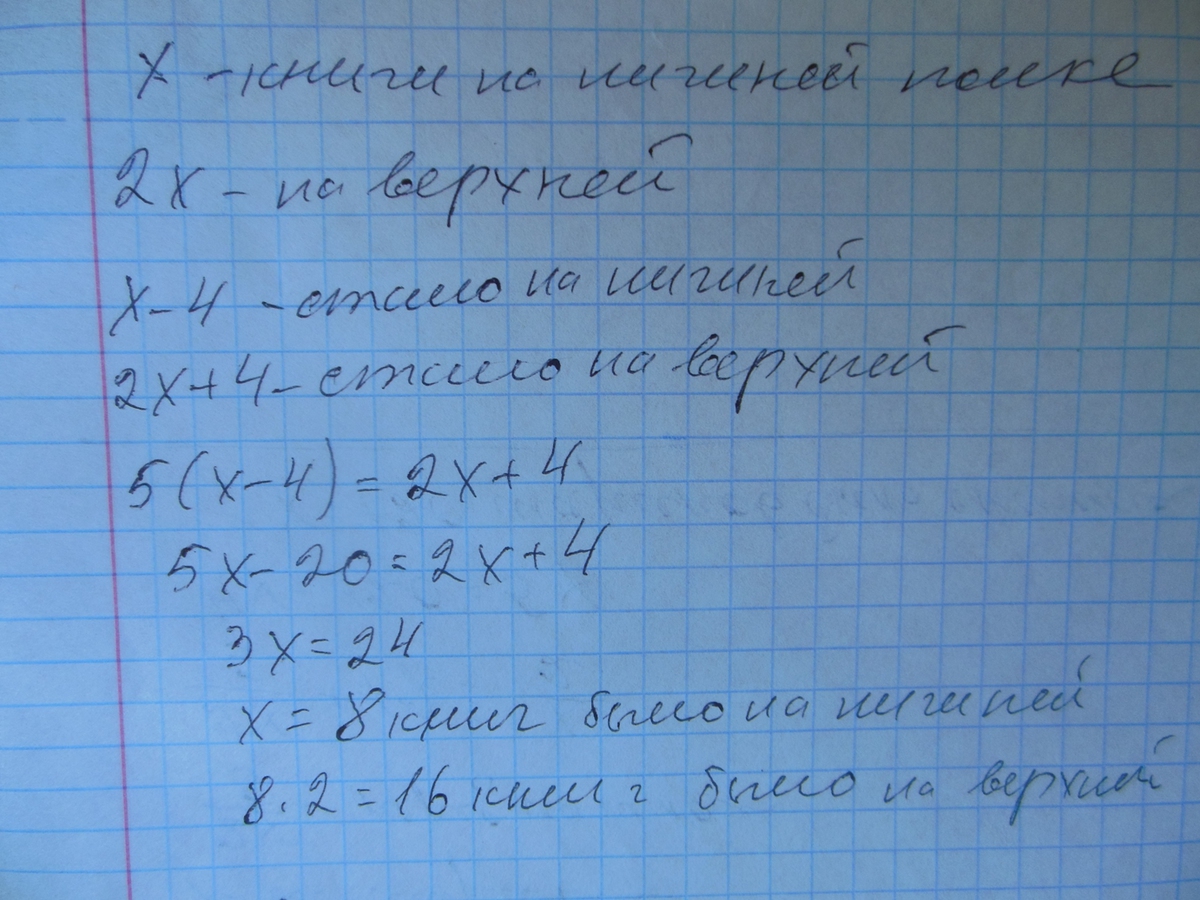 x - книги на нижней полке
2x - на верхней
x-4 - стало на нижней
2x+4 - стало на верхней
5(x-4)=2x+4
5x-20=2x+4
3x=24
x=8 книг было на нижней
8·2=16 книг было на верхней